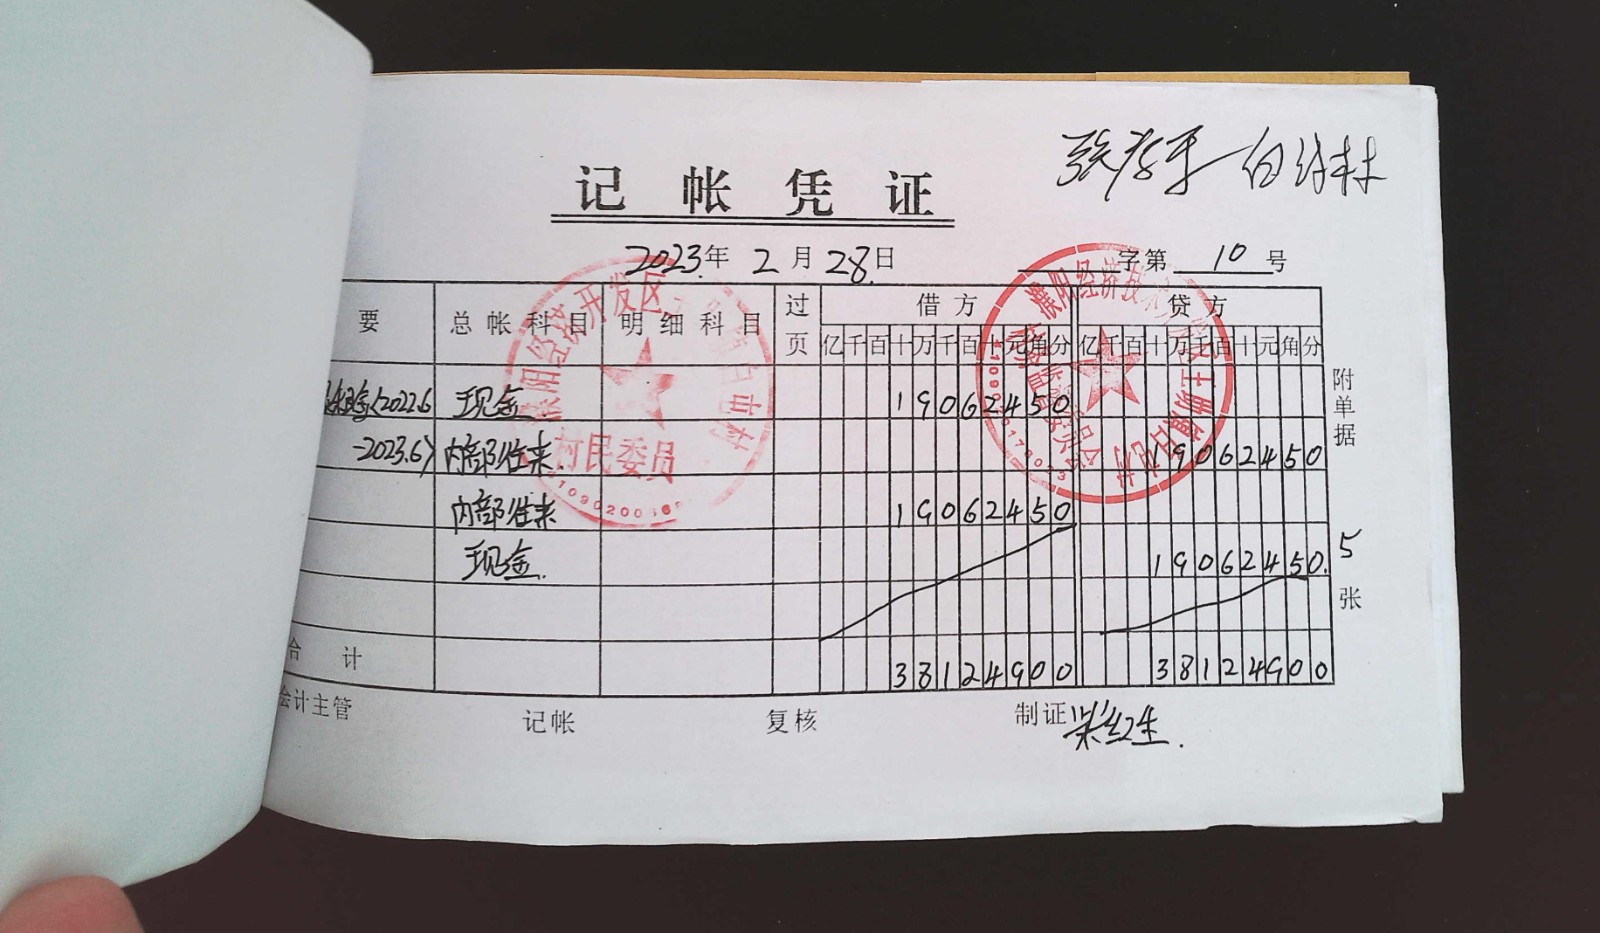 记帐凭证
2023年 2月28日
字第 10 号
要 总帐科目 明细科目 过页 借方 贷方
亿千百十万千百十元角分 亿千百十万千百十元角分
(2022.6 现金 19062450
-2023.6) 内部往来 19062450
内部往来 19062450
现金 19062450
合计 38124900 38124900
附单据 5 张
会计主管 记帐 复核 制证 柴红生
濮阳经济开发区
村民委员
濮阳经济技术